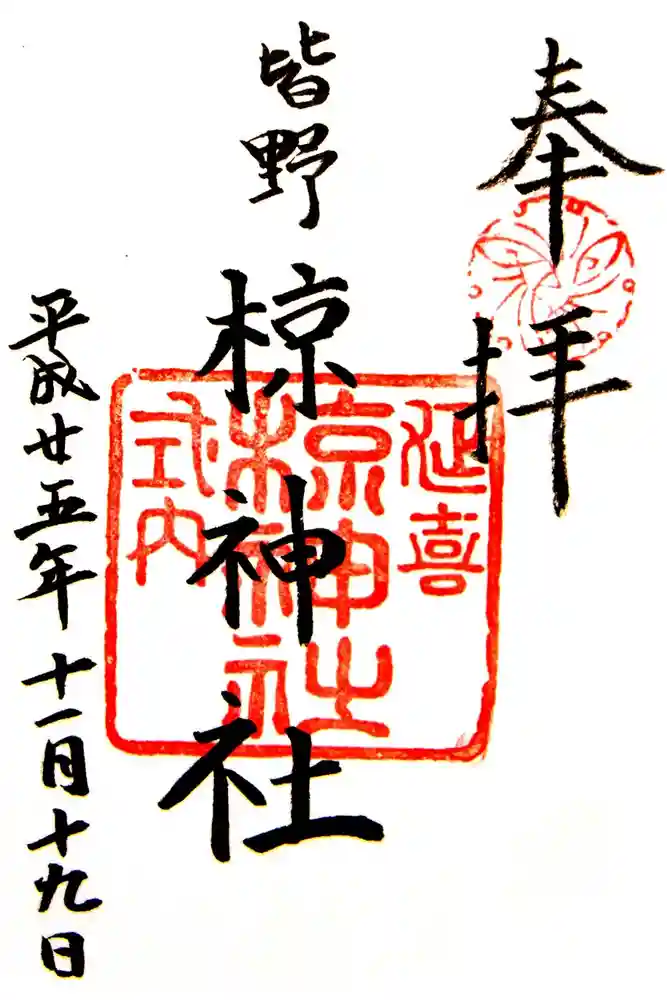 奉拝
皆野
椋神社
延喜
椋神社
式内
平成廿五年十一月十九日